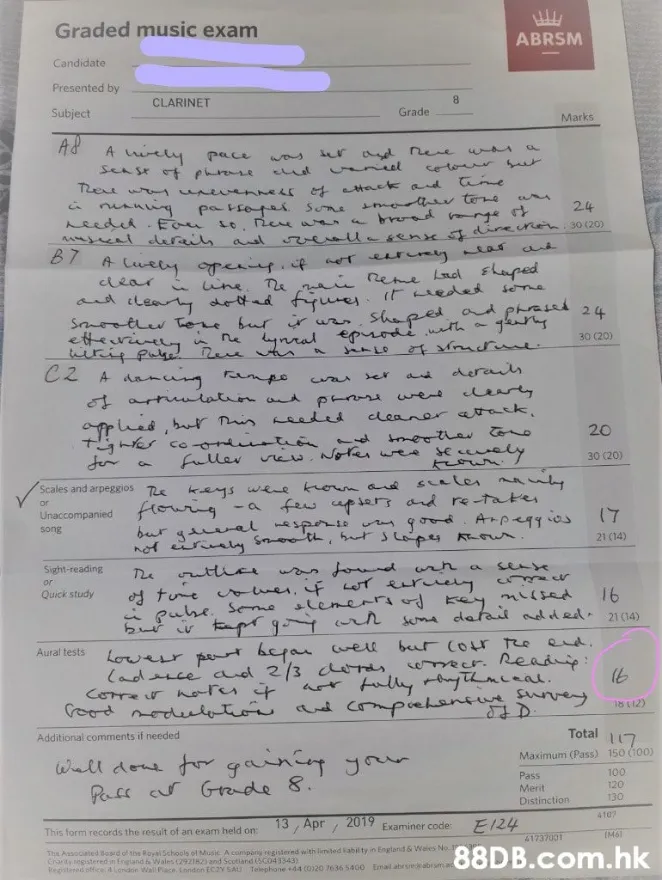 Graded music exam
ABRSM
Candidate
Presented by
Subject CLARINET Grade 8
Marks
A8 A lively pace was set and there was a
sense of phrase and varied colour but
There was unevenness of attack and time
in running passages. Some smoother tone was
needed. Even so, there was a broad range of 24
musical details and overall a sense of direction. 30 (20)
B7 A lively opening, if not entirely neat and
clear in line. The main theme had shaped
and clearly dotted figures. It needed some
smoother tone but it was shaped and phrased 24
effectively in the lyrical episode, with a gently 30 (20)
lilting pulse. There was a sense of structure.
C2 A dancing tempo was set and details
of articulation and phrase were clearly
applied, but this needed cleaner attack,
tighter co-ordination and smoother tone 20
for a fuller view. Notes were securely 30 (20)
known.
Scales and arpeggios The keys were known and scales mainly
or
Unaccompanied flowing - a few upsets and re-takes
song but general response was good. Arpeggios 17
not entirely smooth, but shapes known. 21 (14)
Sight-reading The outline was found with a sense
or
Quick study of time values, if not entirely correct
in pulse. Some elements of key missed 16
but it kept going with some detail added. 21 (14)
Aural tests Lowest part began well but lost the end.
Cadence and 2/3 chords correct. Reading:
Correct notes if not fully rhythmical. 16
Good modulation and comprehensive survey 18 (12)
of D.
Additional comments if needed Total 117
Maximum (Pass) 150 (100)
Well done for gaining your
Pass at Grade 8.
Pass 100
Merit 120
Distinction 130
This form records the result of an exam held on: 13 / Apr / 2019 Examiner code: E124
41737001
4107
(M6)
The Associated Board of the Royal Schools of Music A company registered with limited liability in England & Wales No.
Charity registered in England & Wales (292182) and Scotland (SC043343)
Registered office: 4 London Wall Place, London EC2Y 5AU Telephone +44 (0)20 7636 5400 Email
88DB.com.hk